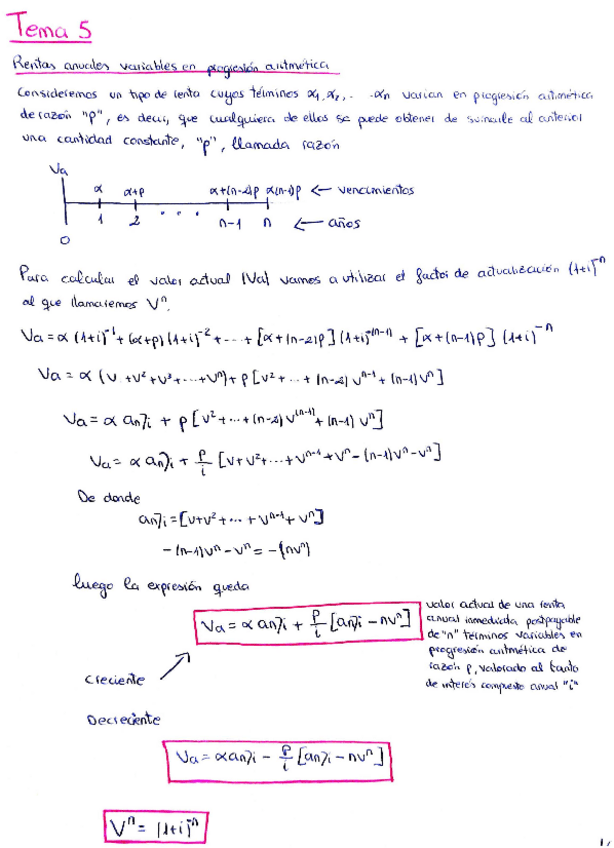 Tema 5
Rentas anuales variables en progresión aritmética
Consideremos un tipo de renta cuyos términos α₁, α₂, . . . αn varian en progresión aritmética
de razón "p", es decir, que cualquiera de ellos se puede obtener de sumarle al anterior
una cantidad constante, "p", llamada razón
Va
α α+p α+(n-2)p α(n-1)p ← vencimientos
1 2 . . . n-1 n ← años
0
Para calcular el valor actual (Va) vamos a utilizar el factor de actualización (1+i)⁻ⁿ
al que llamaremos Vⁿ.
Va = α (1+i)⁻¹ + (α+p) (1+i)⁻² + ··· + [α+(n-2)p] (1+i)⁻⁽ⁿ⁻¹⁾ + [α+(n-1)p] (1+i)⁻ⁿ
Va = α (v + v² + v³ + ··· + vⁿ) + p [v² + ··· + (n-2) vⁿ⁻¹ + (n-1) vⁿ]
Va = α an⌉i + p [v² + ··· + (n-2) v⁽ⁿ⁻¹⁾ + (n-1) vⁿ]
Va = α an⌉i + p/i [v + v² + ··· + vⁿ⁻¹ + vⁿ - (n-1)vⁿ - vⁿ]
De donde
an⌉i = [v + v² + ··· + vⁿ⁻¹ + vⁿ]
-(n-1)vⁿ - vⁿ = -(nvⁿ)
luego la expresión queda
Va = α an⌉i + p/i [an⌉i - nvⁿ]
valor actual de una renta
anual inmediata postpagable
de "n" términos variables en
progresión aritmética de
razón p, valorado al tanto
de interés compuesto anual "i"
creciente
Decreciente
Va = α an⌉i - p/i [an⌉i - nvⁿ]
Vⁿ = (1+i)⁻ⁿ